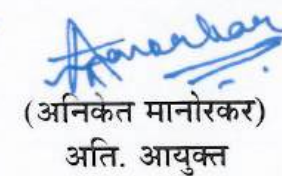 (अनिकेत मानोरकर)
अति. आयुक्त